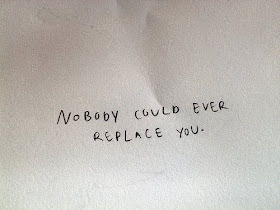 NOBODY COULD EVER
REPLACE YOU.